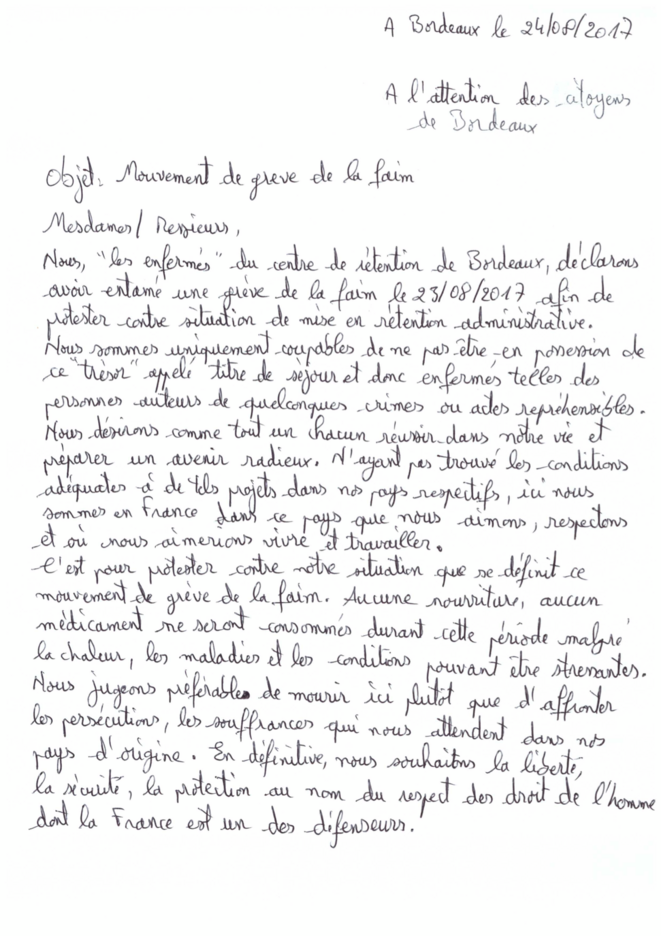 A Bordeaux le 24/08/2017
A l'attention des citoyens
de Bordeaux
Objet: Mouvement de greve de la faim
Mesdames/ Messieurs,
Nous, "les enfermés" du centre de rétention de Bordeaux, déclarons
avoir entamé une grève de la faim le 23/08/2017 afin de
protester contre situation de mise en rétention administrative.
Nous sommes uniquement coupables de ne pas être en possession de
ce "trésor" appelé titre de séjour et donc enfermés telles des
personnes auteurs de quelconques crimes ou actes repréhensibles.
Nous désirons comme tout un chacun réussir dans nôtre vie et
préparer un avenir radieux. N'ayant pas trouvé les conditions
adéquates à de tels projets dans nos pays respectifs, ici nous
sommes en France dans ce pays que nous aimons, respectons
et où nous aimerions vivre et travailler.
C'est pour protester contre notre situation que se définit ce
mouvement de grève de la faim. Aucune nourriture, aucun
médicament ne seront consommés durant cette période malgré
la chaleur, les maladies et les conditions pouvant être stressantes.
Nous jugeons préférables de mourir ici plutôt que d'affronter
les persécutions, les souffrances qui nous attendent dans nos
pays d'origine. En définitive, nous souhaitons la liberté,
la sécurité, la protection au nom du respect des droit de l'homme
dont la France est un des défenseurs.